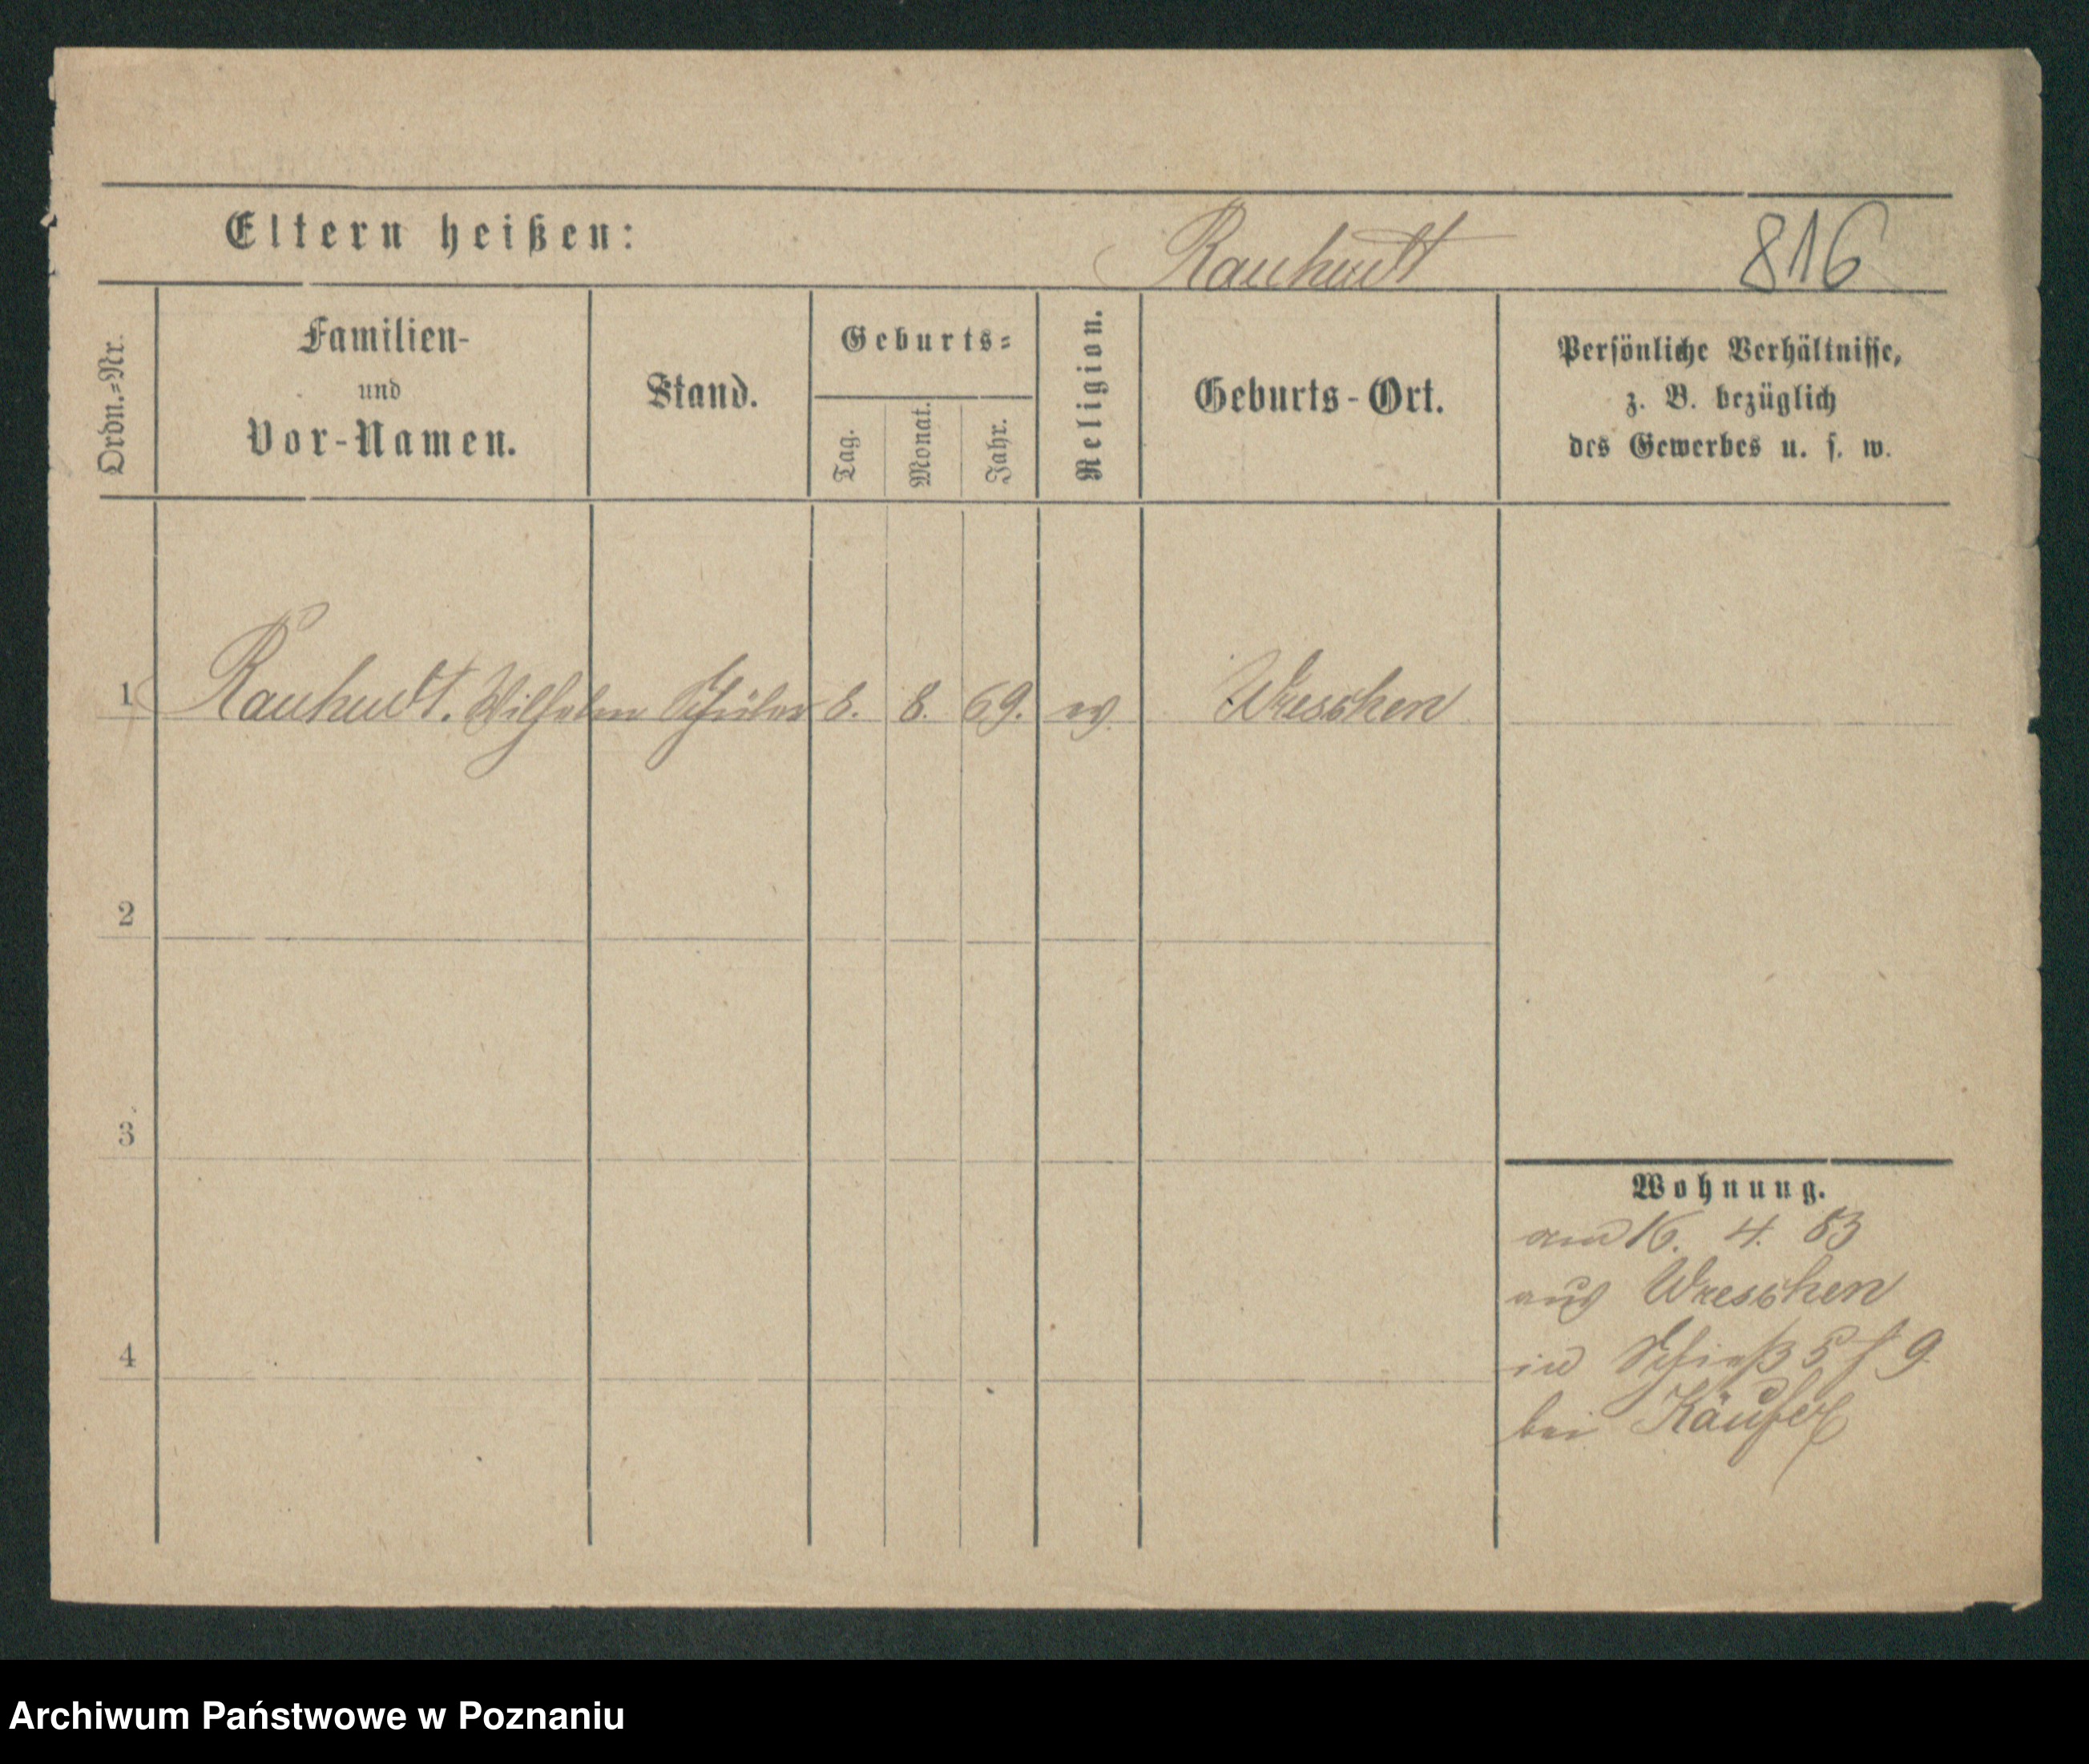 Eltern heißen: Rauhudt 816
Ordn.=Nr.
Familien-
und
Vor-Namen.
Stand.
Geburts=
Tag.
Monat.
Jahr.
Religion.
Geburts-Ort.
Persönliche Verhältnisse,
z. B. bezüglich
des Gewerbes u. s. w.
1 Rauhudt. Wilhelm Schüler 8. 8. 69. ev. Wreschen
2
3
4
Wohnung.
am 16. 4. 83
aus Wreschen
in 5 9
bei Käufer
Archiwum Państwowe w Poznaniu